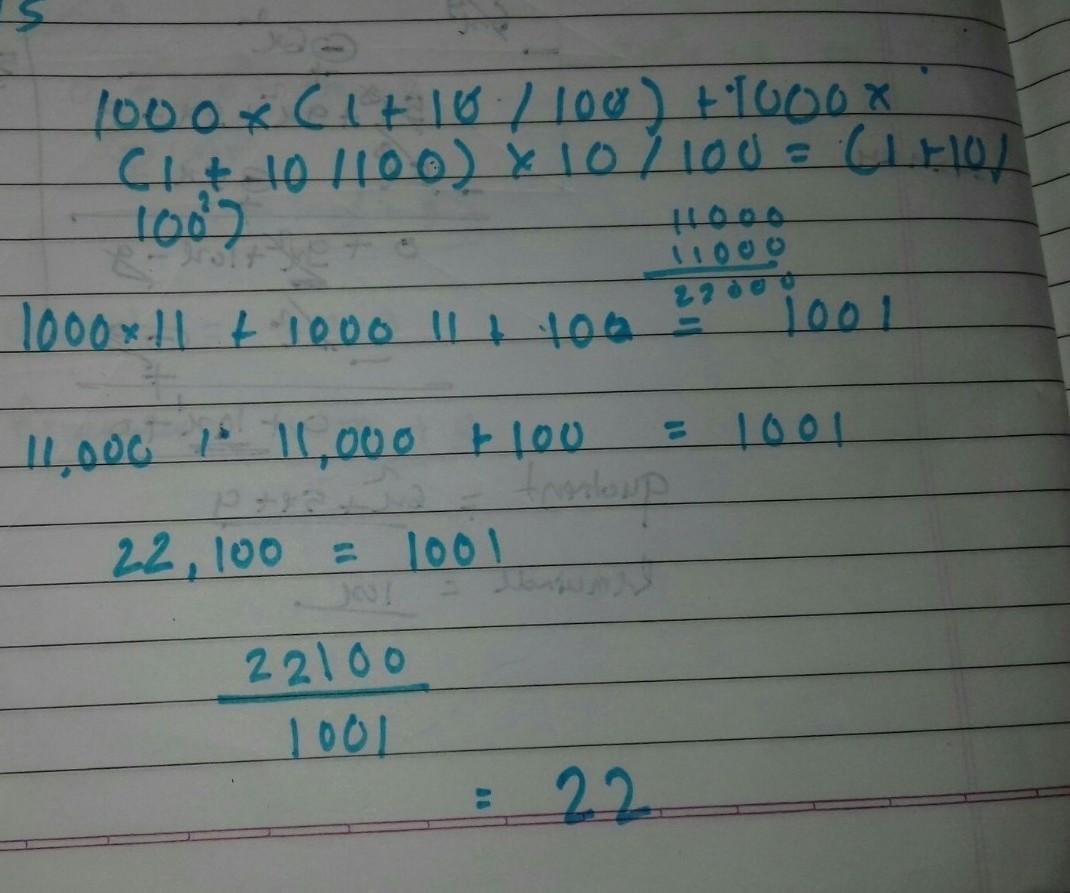 s
1000 × ( 1 + 10 / 100 ) + 1000 ×
( 1 + 10 / 100 ) × 10 / 100 = ( 1 + 10 /
100² )
11000
11000
22000
1000 × 11 + 1000 11 + 100 = 1001
11,000 + 11,000 + 100 = 1001
22,100 = 1001
22100
1001
= 22